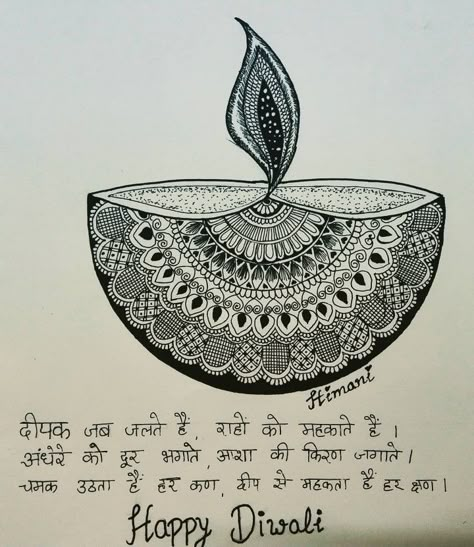 Himani
दीपक जब जलते हैं, राहों को महकाते हैं ।
अंधेरे को दूर भगाते, आशा की किरण जगाते ।
चमक उठता हैं हर कण, दीप से महकता हैं हर क्षण ।
Happy Diwali